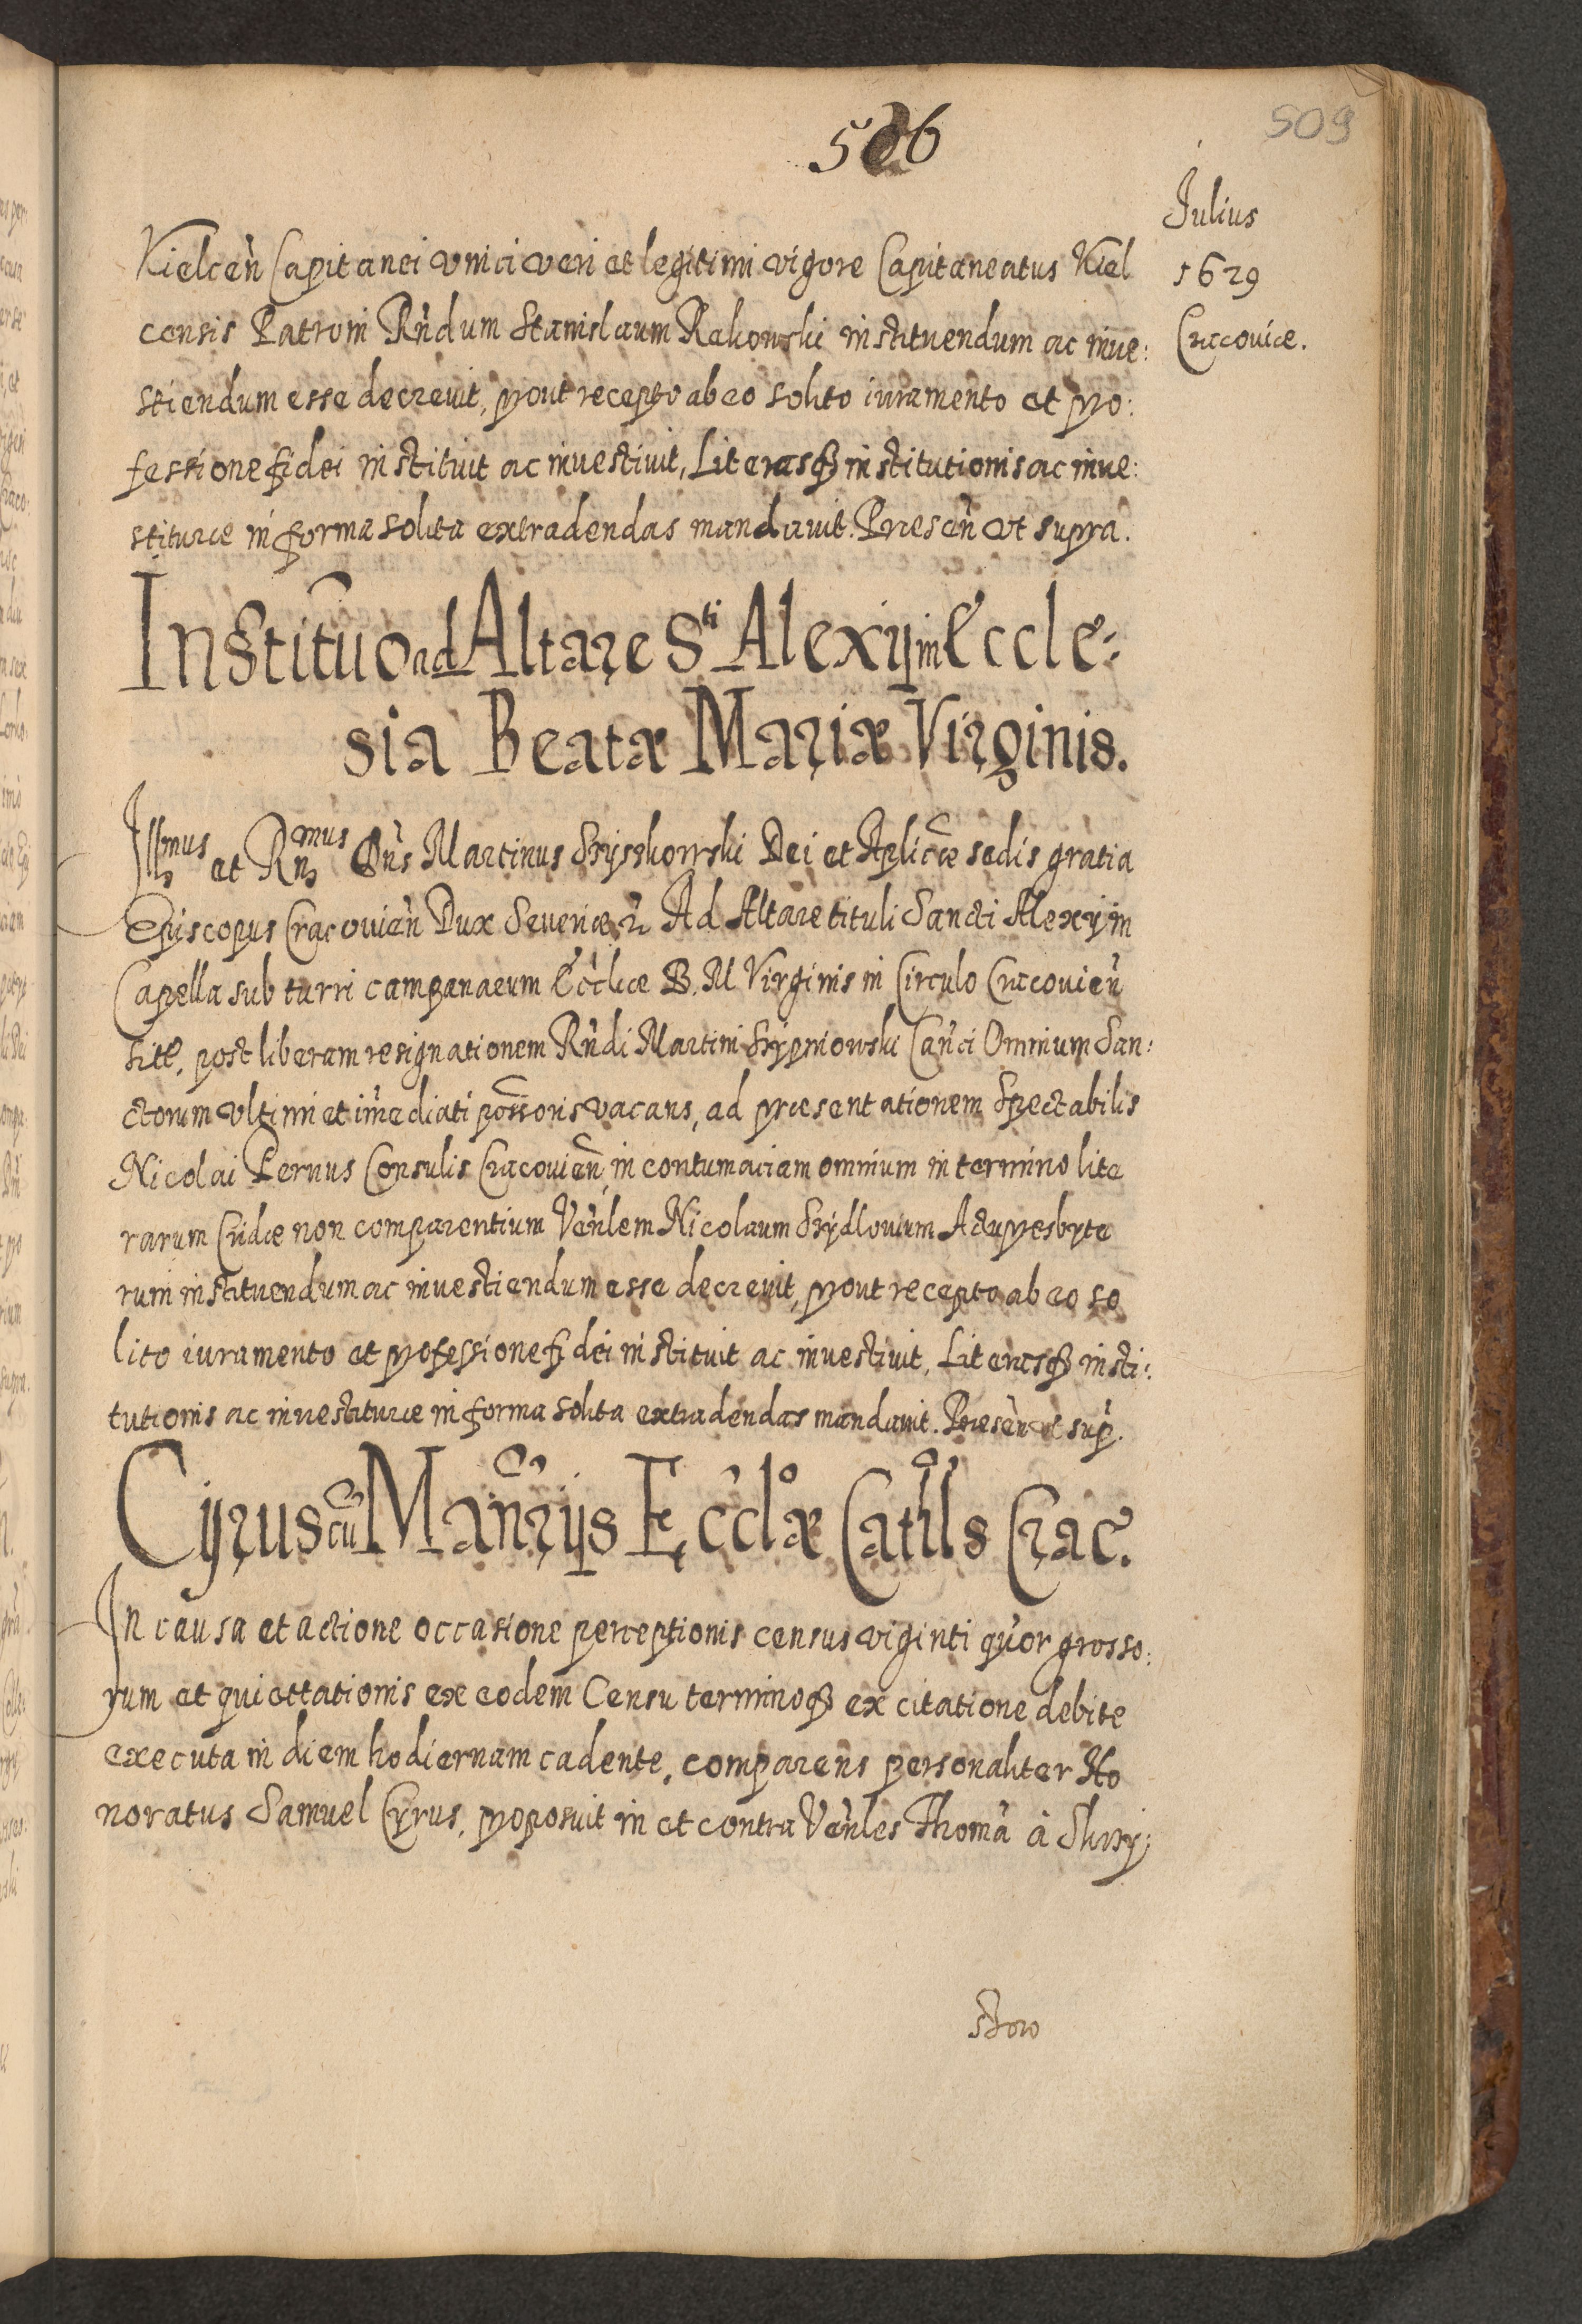 506
509
Julius
1629
Cracoviæ.
Kielceñ Capitanei vnici veri et legitimi vigore Capitaneatus Kiel
censis Patroni Rñdum Stanislaum Rakowski instituendum ac inue:
stiendum esse decreuit, prout recepto ab eo solito iuramento et pro:
fessione fidei instituit ac inuestiuit, Literasq3 institutionis ac inue:
stituræ in forma solita extradendas mandauit. Præseñ vt supra.
Institũo ad Altare Sti Alexij in Eccle:
sia Beatæ Mariæ Virginis.
Illmus et Rnmus Dñs Martinus Szyszkowski Dei et Aplicæ sedis gratia
Episcopus Cracouieñ Dux Seueriæ Ad Altare tituli Sancti Alexij in
Capella sub turri campanarum Eccliæ B. M Virginis in Circulo Cracouieñ
sitẽ, post liberam resignationem Rñdi Martini Szypniowski Cañci Omnium San:
ctorum vltimi et im̃ediati possoris vacans, ad præsentationem Spectabilis
Nicolai Pernus Consulis Cracouieñ, in contumaciam omnium in termino lite
rarum Cridæ non comparentium Veñlem Nicolaum Szydlouium Actu presbyte
rum instituendum ac inuestiendum esse decreuit, prout recepto ab eo so
lito iuramento et professione fidei instituit ac inuestiuit, Literasq3 insti:
tutionis ac inuestituræ in forma solita extradendas mandauit. Præseñ vt sup̃.
Cyrus cũ Mañrijs Ecclæ Cathls Crac.
In causa et actione occasione perceptionis census viginti quor grosso:
rum et quiettationis ex eodem Censu terminoq3 ex citatione debite
executa in diem hodiernam cadente, comparens personaliter Ho
noratus Samuel Cyrus, proposuit in et contra Veñles Thomã à Skrzy: